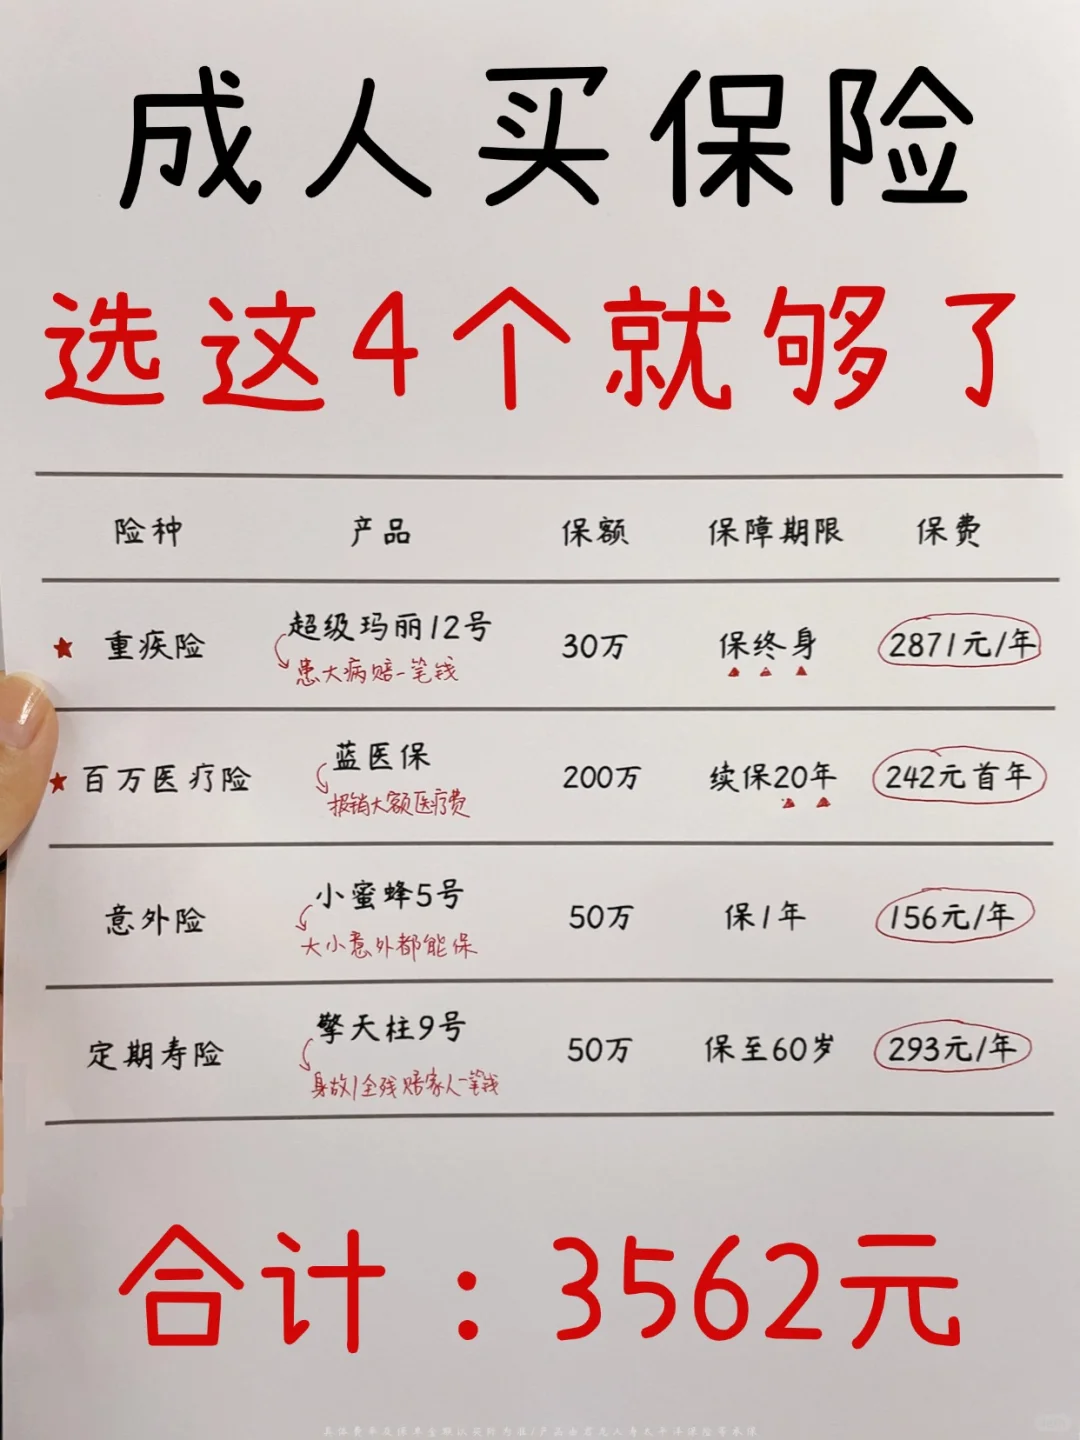 成人买保险
选这4个就够了
险种 产品 保额 保障期限 保费
重疾险 超级玛丽12号 30万 保终身 2871元/年
患大病赔一笔钱
百万医疗险 蓝医保 200万 续保20年 242元首年
报销大额医疗费
意外险 小蜜蜂5号 50万 保1年 156元/年
大小意外都能保
定期寿险 擎天柱9号 50万 保至60岁 293元/年
身故/全残赔家人一笔钱
合计：3562元